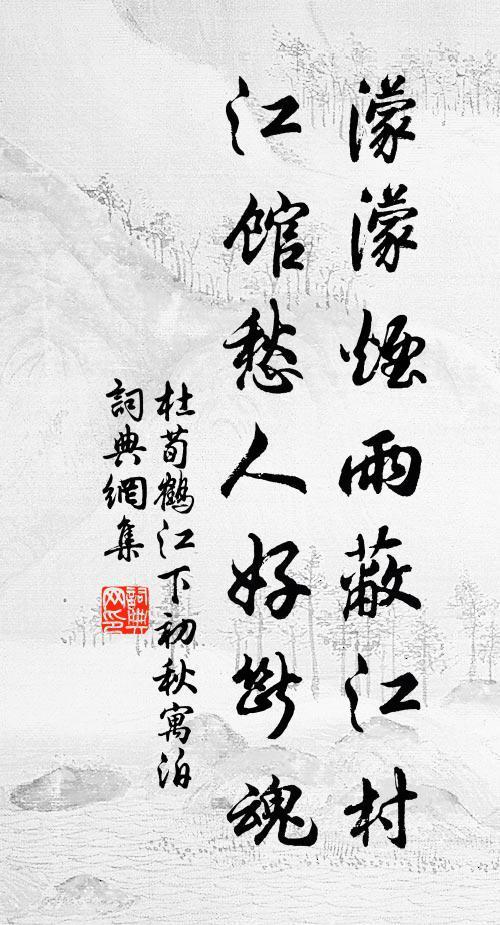 濛濛煙雨蔽江村
江館愁人好斷魂
杜荀鶴江下初秋寓泊
詞典網集
詞典网印